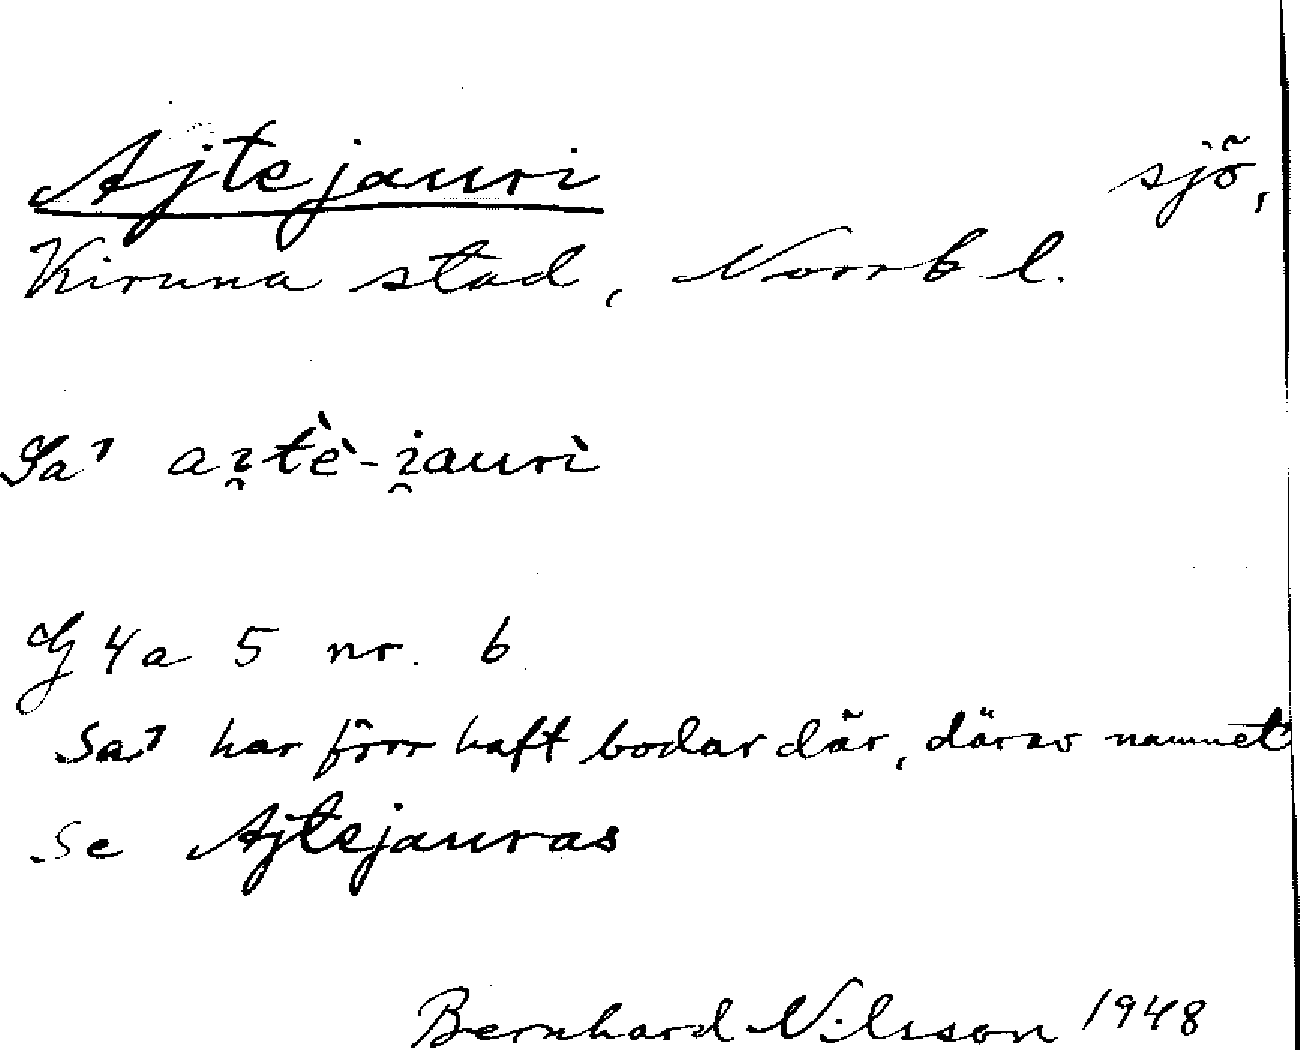 Ajtejauri sjö,
Kiruna stad, Norrb l.
Sa¹ ai̯tè-i̯aurì
G 4a 5 nr. 6
Sa¹ har förr haft bodar där, därav namnet
Se Ajtejauras
Bernhard Nilsson 1948